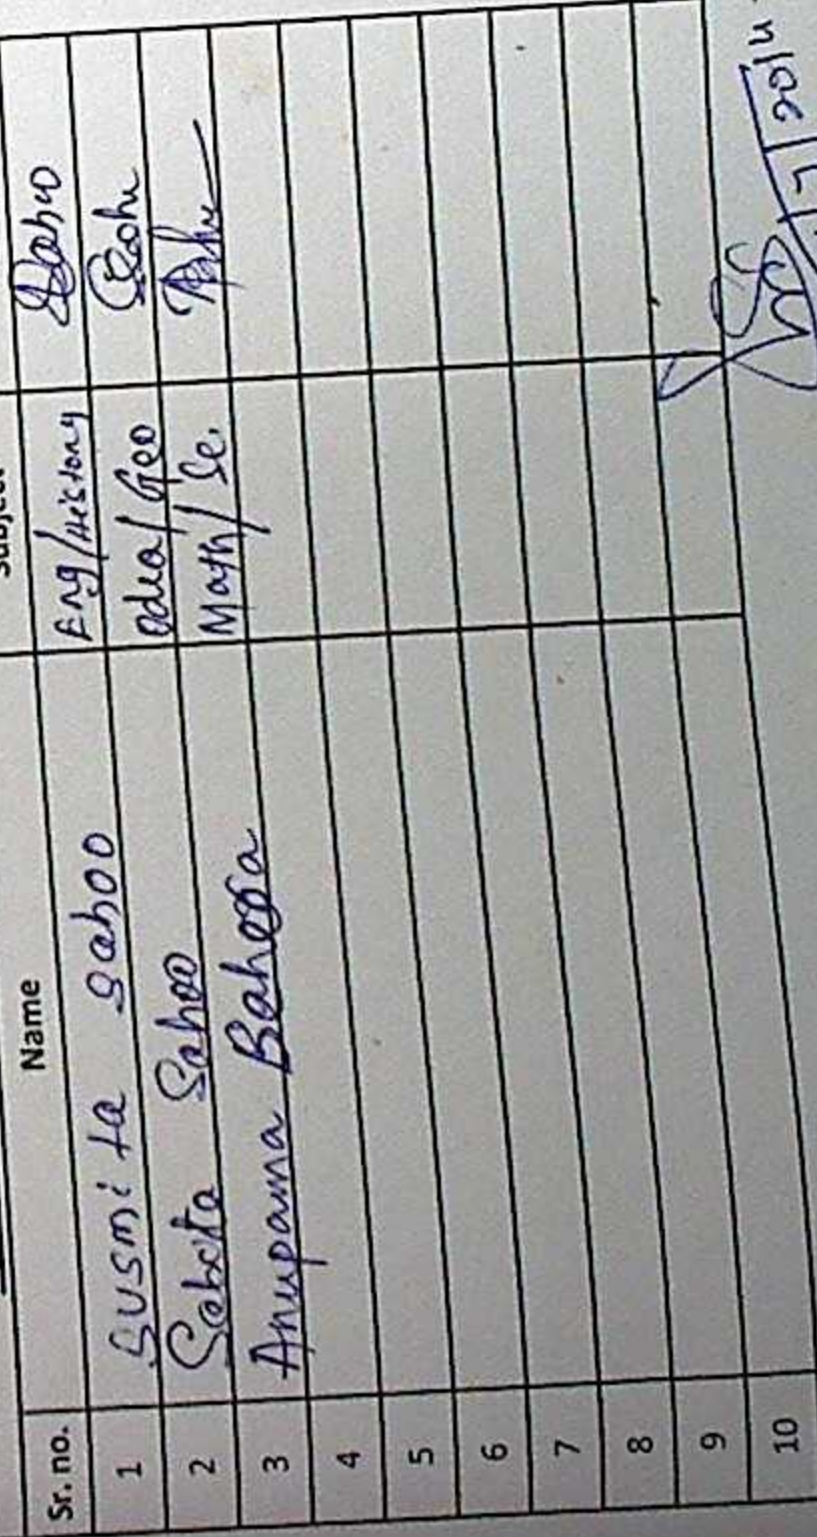 Sr. no. Name Subject
1 Susmita Sahoo Eng/History Sahoo
2 Sabita Sahoo Odia/Geo Sahu
3 Anupama Behera Math/Sc.
4
5
6
7
8
9
10